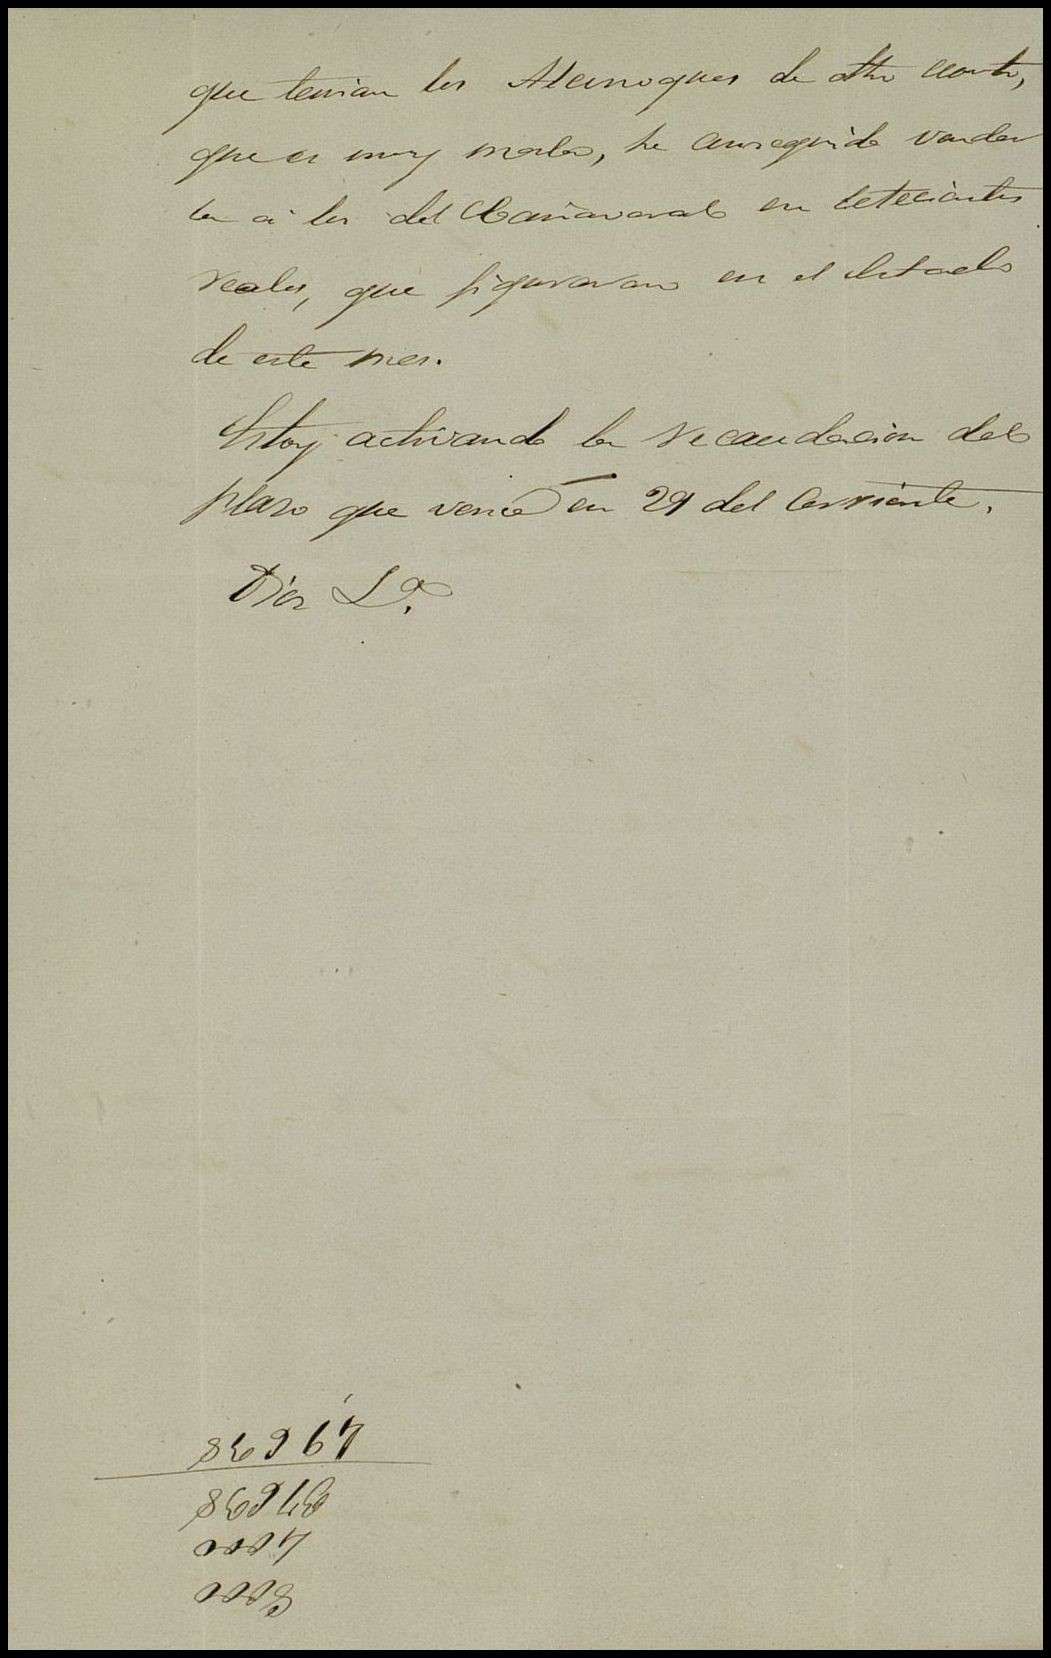 que tenian los Alcornoques de dho cuarto,
que es muy mala, he conseguido vender
la á los del Cañaveral en setecientos
reales, que figuraran en el Estado
de este mes.
Estoy activando la recaudacion del
plazo que vence en 29 del corriente.
Dios
8000
4000
37638
49638